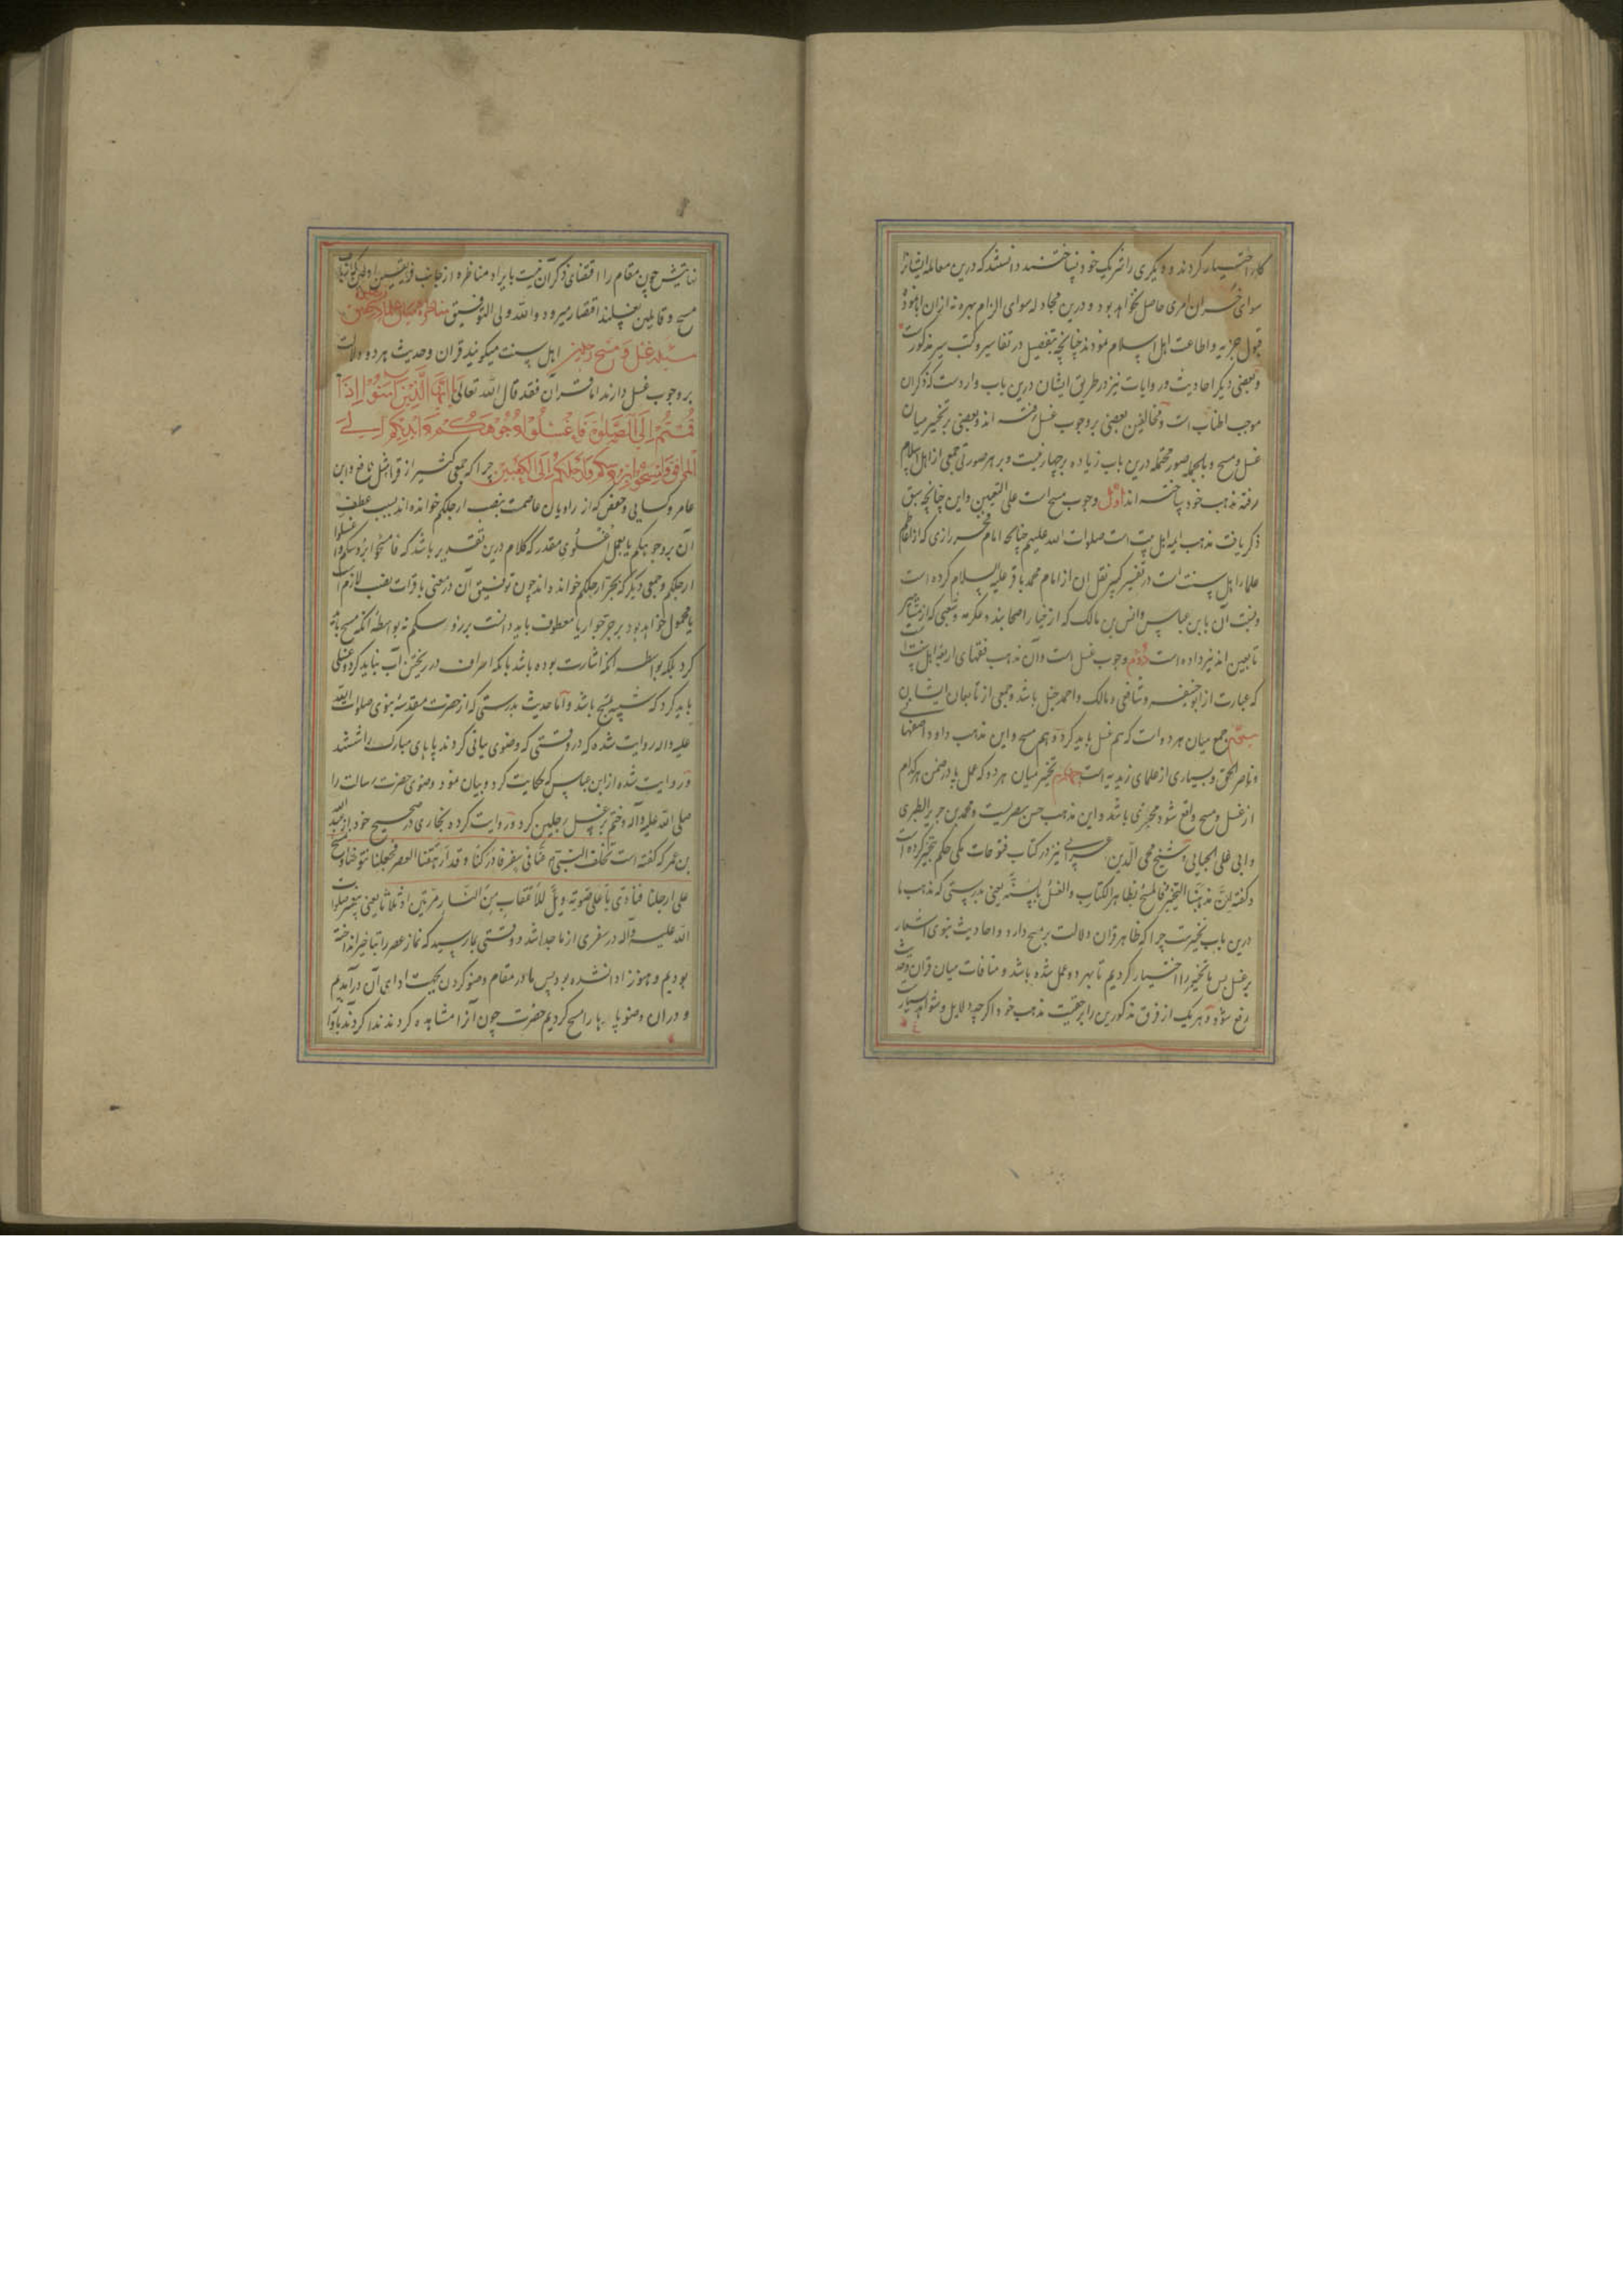 کار اختیار کردند و دیگری را شریک خود نساختند دانستند که درین معامله ایشانرا
سوای خسران امری حاصل نخواهد بود و درین مجادله سوای الزام بهره نه ازان
قبول جزیه و اطاعت اهل اسلام نمودند چنانچه بتفصیل در تفاسیر و کتب سیر مذکورست
و بعضی دیگر احادیث و روایات نیز در طریق ایشان درین باب واردست که ذکر آن
موجب اطنابست و مخالفین بعضی بر وجوب غسل رفته اند و بعضی بر تخییر میان
غسل و مسح و بالجمله صور محتمله درین باب زیاده بر چهار نیست و بر هر صورتی جمعی از اهل اسلام
رفته مذهب خود ساخته اند اول وجوب مسح است علی التعیین و این چنانچه سبق
ذکر یافت مذهب ایمه اهل بیت است صلوات الله علیهم چنانچه امام فخر رازی که از اعاظم
علماء اهل سنت است در تفسیر کبیر نقل آن از امام محمد باقر علیه السلام کرده است
و نسبت آن بابن عباس و انس بن مالک که از خیار اصحابند و عکرمه و شعبی که از مشاهیر
تابعین اند نیز داده است دوم وجوب غسل است و آن مذهب فقهای اربعه اهل سنت است
که عبارت از ابو حنیفه و شافعی و مالک و احمد حنبل باشد و جمعی از تابعان ایشان
سیم جمع میان هر دو است که هم غسل باید کرد و هم مسح و این مذهب داود اصفهانی
و ناصر الحق و بسیاری از علمای زیدیه است چهارم تخییر میان هر دو که عمل یا در ضمن هر کدام
از غسل و مسح واقع شود مجزی باشد و این مذهب حسن بصریست و محمد بن جریر الطبری
و ابی علی الجبایی و شیخ محی الدین عربی نیز در کتاب فتوحات مکی حکم بتخییر کرده است
و گفته ان مذهبنا التخییر فالمسح بظاهر الکتاب والغسل بالسنه یعنی بدرستی که مذهب ما
درین باب تخییرست چرا که ظاهر قرآن دلالت بر مسح دارد و احادیث نبوی اشعار
بر غسل پس ما تخییر را اختیار کردیم تا بهر دو عمل شده باشد و منافات میان قرآن و حدیث
رفع شود و هر یک از فرق مذکورین را بر حقیت مذهب خود اگر چه دلایل و شواهد بسیار است
نهایتش چون مقام را اقتضای ذکر آن نیست بایراد مناظره از جانب فریقین
مسح و قایلین بغسلند اقتصار میرود والله ولی التوفیق مناظره
مسئله غسل و مسح رجلین اهل سنت میگویند قران و حدیث هر دو دلالت
بر وجوب غسل دارند اما قرآن فقد قال الله تعالی یا ایها الذین آمنوا اذا
قمتم الی الصلوة فاغسلوا وجوهکم و ایدیکم الی
المرافق وامسحوا برؤسکم و ارجلکم الی الکعبین چرا که جمعی کثیر از قرا مثل نافع و ابن
عامر و کسایی و حفص که از راویان عاصمست بنصب ارجلکم خوانده اند بسبب عطف
آن بر وجوهکم یا بعمل اغسلوی مقدر که کلام درین تقدیر باشد که فامسحوا برؤسکم و اغسلوا
ارجلکم و جمعی دیگر که بجر ارجلکم خوانده اند چون توفیق آن در معنی با قرات نصب لازم است
یا محمول خواهد بود بر جر جوار یا معطوف باید دانست بر رؤسکم نه بواسطه آنکه مسح باید
کرد بلکه بواسطه آنکه اشارت بوده باشد بآنکه اسراف در ریختن آب نباید کرد و غسلی
باید کرد که شبیه بمسح باشد و اما حدیث بدرستی که از حضرت مقدسه نبوی صلوات الله
علیه و اله روایت شده که در وقتی که وضوی بیانی کردند پاهای مبارک را شستند
و روایت شده از ابن عباس که حکایت کرد و بیان نمود وضوی حضرت رسالت را
صلی الله علیه و آله و ختم بر غسل رجلین کرد و روایت کرده بخاری در صحیح خود از عبد الله
بن عمر که گفته است تخلف النبی عنا فی سفر فادرکنا و قد ارهقنا العصر فجعلنا نتوضا و نمسح
علی ارجلنا فنادی باعلی صوته ویل للاعقاب من النار مرتین او ثلاثا یعنی پیغمبر صلوات
الله علیه و آله در سفری از ما جدا شد و وقتی بما رسید که نماز عصر را بتاخیر انداخته
بودیم و هنوز ادا نشده بود پس ما در مقام وضو کردن بجهت ادای آن در آمدیم
و در ان وضو پاها را مسح کردیم حضرت چون آنرا مشاهده کردند ندا کردند بآواز